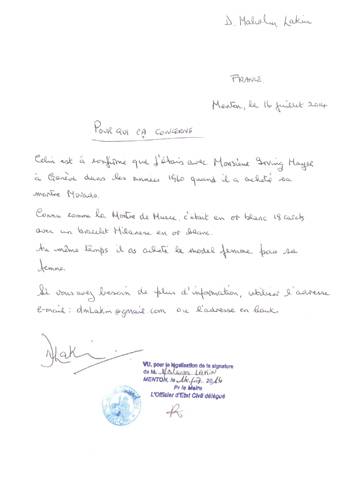 D. Malcolm Lakin
FRANCE
Menton, le 16 juillet 2014
POUR QUI ÇA CONCERNE
Celui est à confirme que j'étais avec Monsieur Irving
à Genève dans les années 1960 quand il a acheté sa
montre Movado.
Connu comme la Montre de Musee, c'était en or blanc 18 carats
avec un bracelet Milanese en or blanc.
Au même temps il as acheté le model femme pour sa
femme.
Si vous avez besoin de plus d'information, utiliser l'adresse
e-mail: dmlakin@gmail.com ou l'adresse en haut.
DLakin
VU, pour la légalisation de la signature
de M. Malcolm LAKIN
MENTON, le 2014
Pr le Maire
L'Officier d'Etat Civil délégué